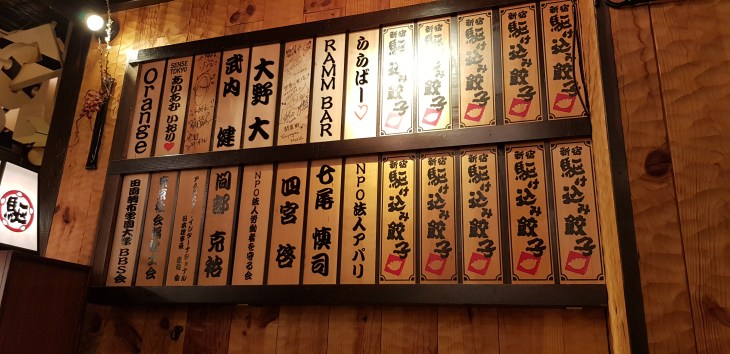 Orange
SENSE TOKYO
あいあかいおり♥
武内 健
大野 大
RAMM BAR
ららばー♡
新宿 駆け込み餃子
新宿 駆け込み餃子
新宿 駆け込み餃子
新宿 駆け込み餃子
新宿 駆け込み餃子
田園調布学園大学 BBS会
間部 克裕
NPO法人労働者を守る会
四宮 啓
七尾 慎司
NPO法人アパリ
新宿 駆け込み餃子
新宿 駆け込み餃子
新宿 駆け込み餃子
新宿 駆け込み餃子
新宿 駆け込み餃子
駆